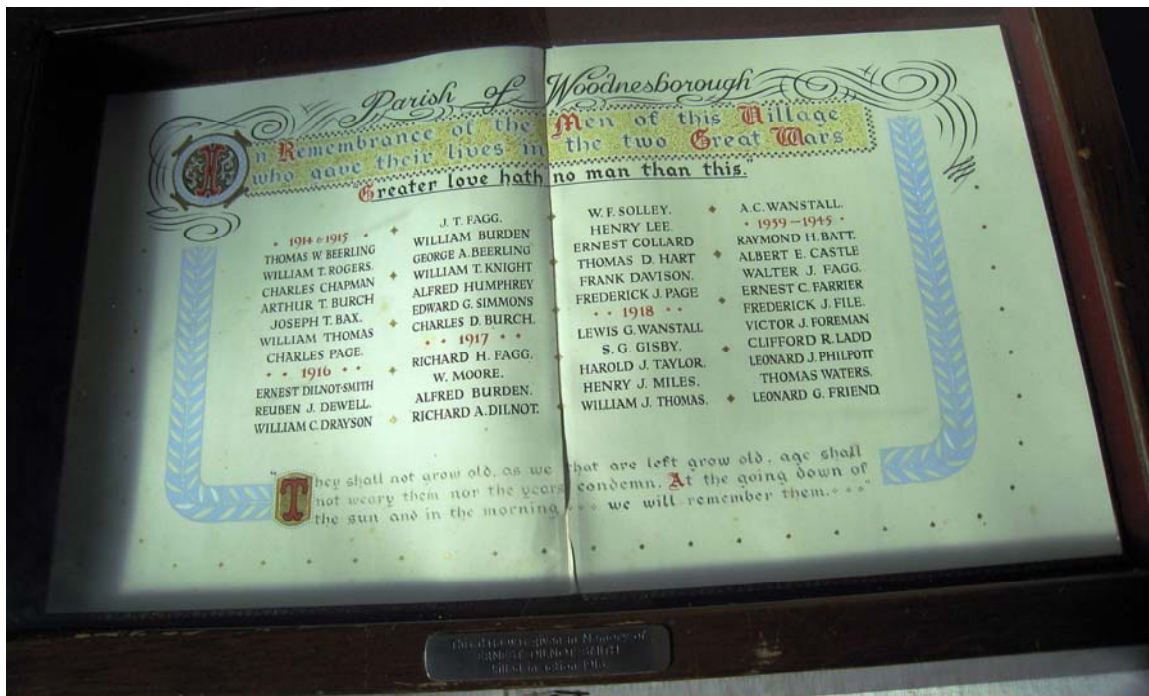 Parish of Woodnesborough
In Remembrance of the Men of this Village
who gave their lives in the two Great Wars
"Greater love hath no man than this."
· 1914 & 1915 ·
THOMAS W. BEERLING
WILLIAM T. ROGERS.
CHARLES CHAPMAN
ARTHUR T. BURCH
JOSEPH T. BAX.
WILLIAM THOMAS
CHARLES PAGE.
· · 1916 · ·
ERNEST DILNOT-SMITH
REUBEN J. DEWELL.
WILLIAM C. DRAYSON
J. T. FAGG.
WILLIAM BURDEN
GEORGE A. BEERLING
WILLIAM T. KNIGHT
ALFRED HUMPHREY
EDWARD G. SIMMONS
CHARLES D. BURCH.
· · 1917 · ·
RICHARD H. FAGG.
W. MOORE.
ALFRED BURDEN.
RICHARD A. DILNOT.
W. F. SOLLEY.
HENRY LEE.
ERNEST COLLARD
THOMAS D. HART
FRANK DAVISON.
FREDERICK J. PAGE
· · 1918 · ·
LEWIS G. WANSTALL
S. G. GISBY.
HAROLD J. TAYLOR.
HENRY J. MILES.
WILLIAM J. THOMAS.
A. C. WANSTALL.
· 1939-1945 ·
RAYMOND H. BATT.
ALBERT E. CASTLE
WALTER J. FAGG.
ERNEST C. FARRIER
FREDERICK J. FILE.
VICTOR J. FOREMAN
CLIFFORD R. LADD
LEONARD J. PHILPOTT
THOMAS WATERS.
LEONARD G. FRIEND.
"They shall not grow old, as we that are left grow old, age shall
not weary them nor the years condemn. At the going down of
the sun and in the morning . . . we will remember them. . . ."
This case was given in Memory of
ERNEST DILNOT SMITH
killed in action 1916